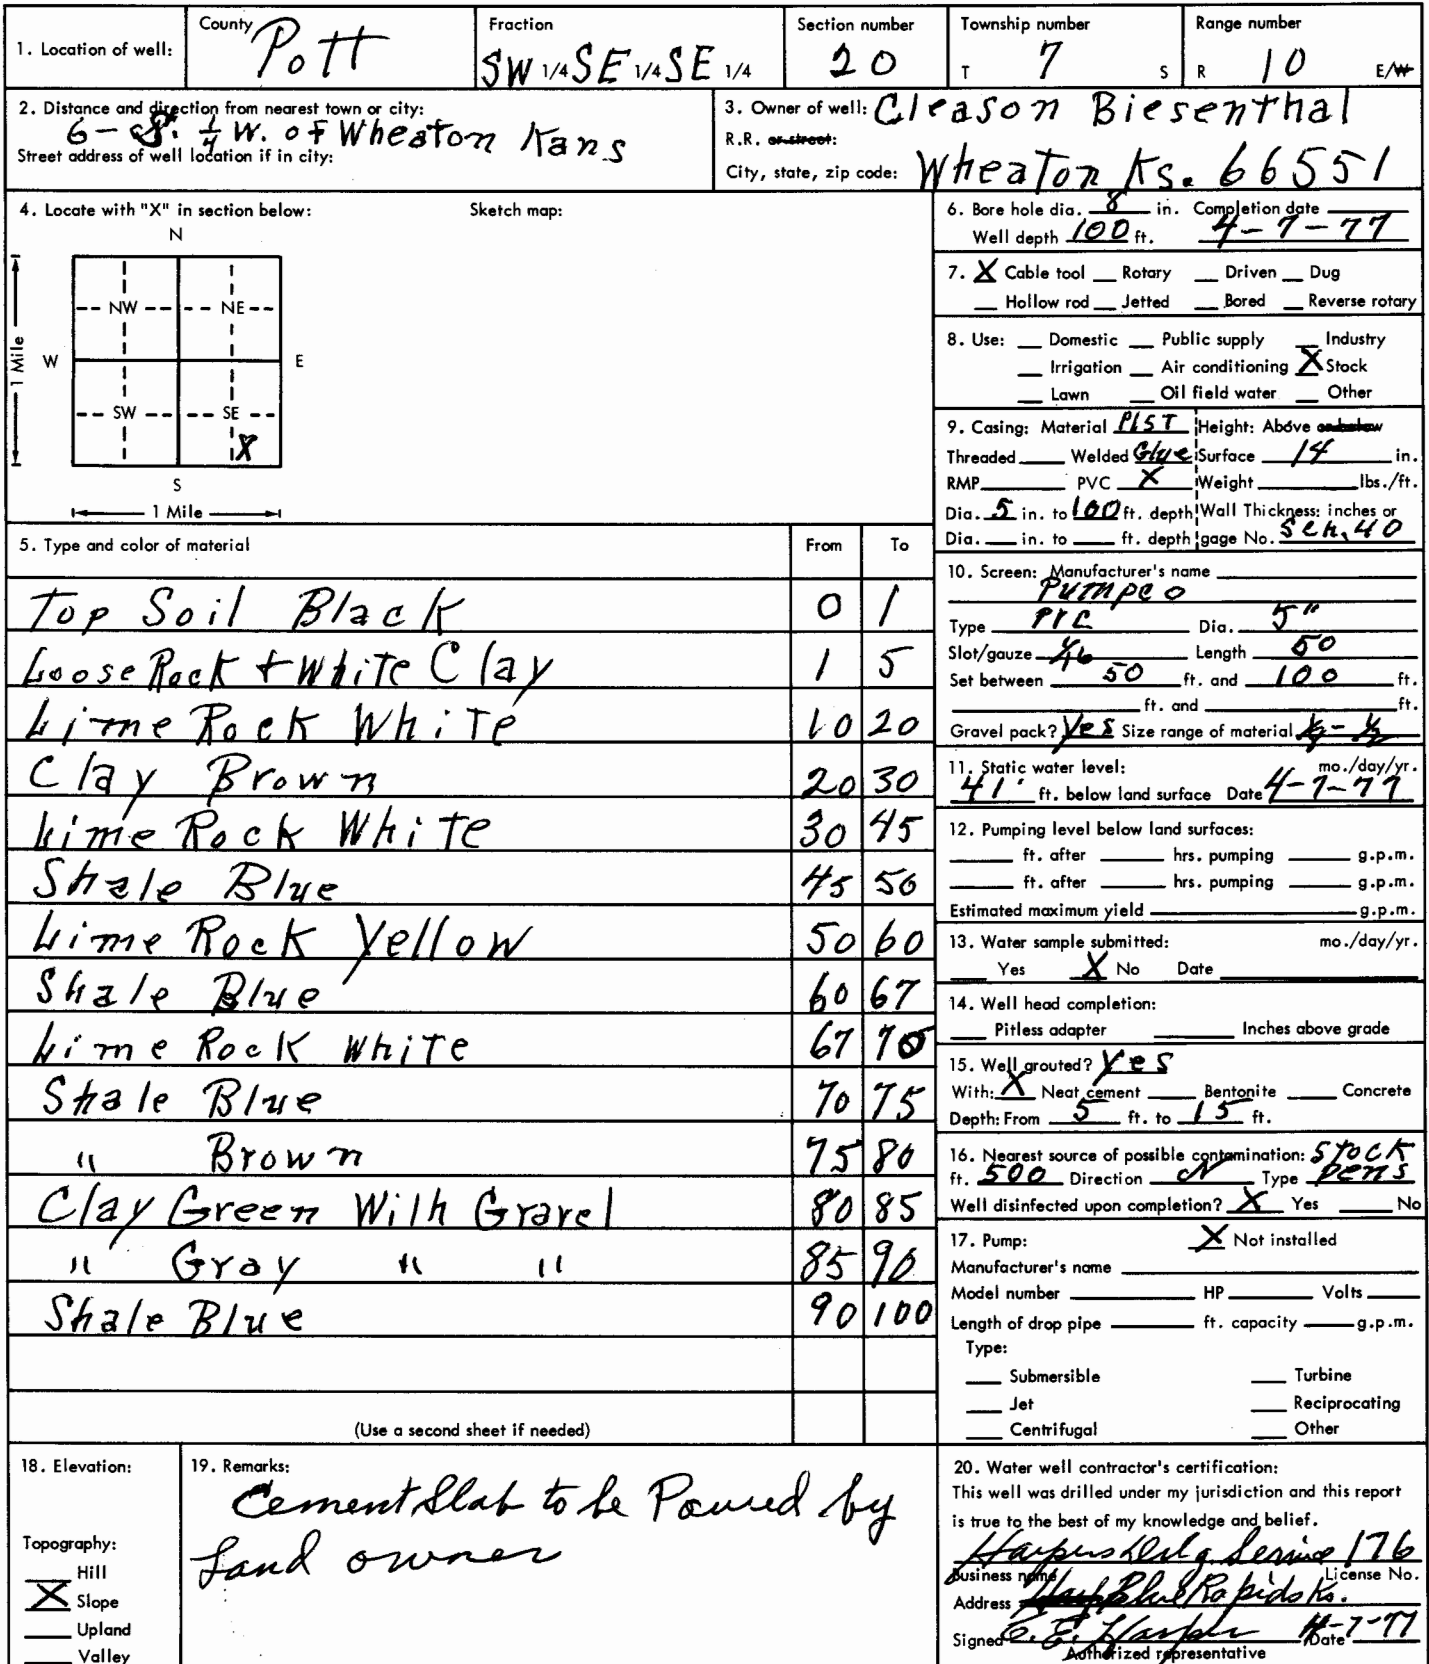 1. Location of well: County Pott Fraction SW 1/4 SE 1/4 SE 1/4 Section number 20 Township number T 7 S Range number R 10 E/W
2. Distance and direction from nearest town or city: 6- S. 1/4 W. of Wheaton Kans
Street address of well location if in city:
3. Owner of well: Cleason Biesenthal
R.R. or street:
City, state, zip code: Wheaton Ks. 66551
4. Locate with "X" in section below: Sketch map:
N
NW NE
W E
1 Mile
SW SE
X
S
1 Mile
5. Type and color of material From To
Top Soil Black 0 1
Loose Rock + White Clay 1 5
Lime Rock White 10 20
Clay Brown 20 30
Lime Rock White 30 45
Shale Blue 45 50
Lime Rock Yellow 50 60
Shale Blue 60 67
Lime Rock White 67 70
Shale Blue 70 75
" Brown 75 80
Clay Green With Gravel 80 85
" Gray " " 85 90
Shale Blue 90 100
(Use a second sheet if needed)
6. Bore hole dia. 8 in. Completion date
Well depth 100 ft. 4-7-77
7. X Cable tool Rotary Driven Dug
Hollow rod Jetted Bored Reverse rotary
8. Use: Domestic Public supply Industry
Irrigation Air conditioning X Stock
Lawn Oil field water Other
9. Casing: Material PlST Height: Above or below
Threaded Welded Glue Surface 14 in.
RMP PVC X Weight lbs./ft.
Dia. 5 in. to 100 ft. depth Wall Thickness: inches or
Dia. in. to ft. depth gage No. Sch. 40
10. Screen: Manufacturer's name
Pumpco
Type PVC Dia. 5"
Slot/gauze 1/16 Length 50
Set between 50 ft. and 100 ft.
ft. and ft.
Gravel pack? Yes Size range of material
11. Static water level: mo./day/yr.
41' ft. below land surface Date 4-7-77
12. Pumping level below land surfaces:
ft. after hrs. pumping g.p.m.
ft. after hrs. pumping g.p.m.
Estimated maximum yield g.p.m.
13. Water sample submitted: mo./day/yr.
Yes X No Date
14. Well head completion:
Pitless adapter Inches above grade
15. Well grouted? Yes
With: X Neat cement Bentonite Concrete
Depth: From 5 ft. to 15 ft.
16. Nearest source of possible contamination: Stock
ft. 500 Direction N Type Pens
Well disinfected upon completion? X Yes No
17. Pump: X Not installed
Manufacturer's name
Model number HP Volts
Length of drop pipe ft. capacity g.p.m.
Type:
Submersible Turbine
Jet Reciprocating
Centrifugal Other
18. Elevation:
Topography:
Hill
X Slope
Upland
Valley
19. Remarks:
Cement Slab to be Poured by
Land owner
20. Water well contractor's certification:
This well was drilled under my jurisdiction and this report
is true to the best of my knowledge and belief.
Harpers Drlg Service 176
Business name License No.
Address Blue Rapids Ks.
Signed C. E. Harper Date 4-7-77
Authorized representative